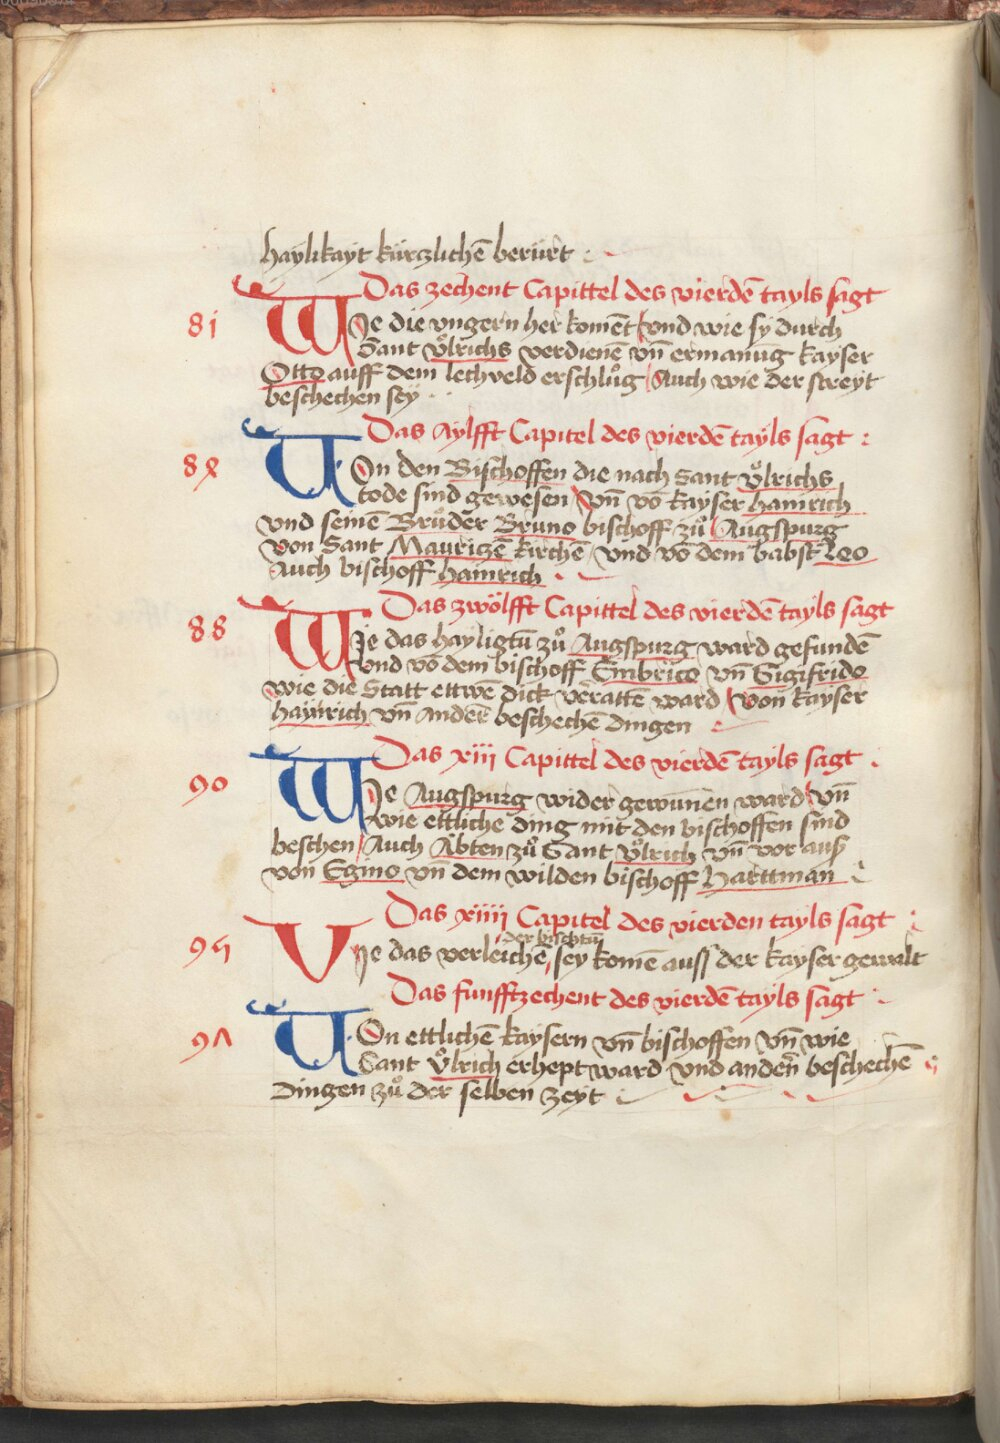 haÿlikayt kürczlichē berürt
Das zechent Capittel des vierdē tayls sagt
81 WJe die vngern her komēt / vnd wie sÿ durch
Sant vͦlrichs verdienē vn̄ ermanūg kayser
Otto auff dem lechveld erschlůg / Auch wie der streÿt
beschechen seÿ
Das Aÿlfft Capitel des vierdē taÿls sagt
On den Bischoffen die nach Sant vͦlrichs
tode sind gewesen / vn̄ vō kayser hainrich
vnd seinē Brůder Bruno bischoff zů Augspurg
von Sant Mauriczē kirchē / vnd vō dem babst Leo
Auch bischoff hainrich
Das zwölfft Capittel des vierdē taÿls sagt
88 WJe das hayligtū zů Augspurg ward gefundē
vnd vō dem bischoff Embrico vn̄ Sigifrido
wie die Statt ettwē dick verattē ward / von kayser
haÿnrich vn̄ anderē beschechē dingen
Das xiii Capittel des vierdē taÿls sagt
90 WJe Augspurg wider gewunnen ward / vn̄
wie ettliche ding mit den bischoffen sind
beschen / Auch Äbten zů Sant vͦlrich vn̄ vor auß
von Egino vn̄ dem wilden bischoff Harttman
Das xiiii Capitel des vierden tayls sagt
der bischtū
VJe das verleichē sey komē auss der kayser gewalt
Das funfftzechent des vierdē taÿls sagt
On ettlichē kaysern vn̄ bischoffen vn̄ wie
Sant vͦlrich erhept ward vnd andern̄ beschechē
Dingen zů der selben zeÿt